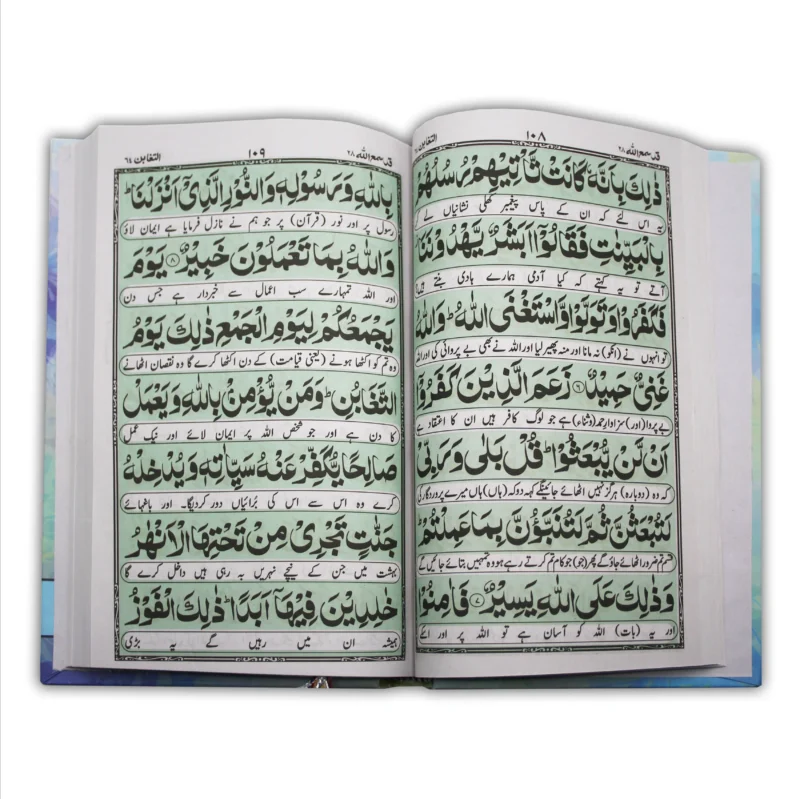 قد سمع الله ٢٨
١٠٨
التغابن
ذٰلِكَ بِاَنَّهٗ كَانَتْ تَّاْتِيْهِمْ رُسُلُهُمْ
یہ اس لئے کہ ان کے پاس پیغمبر کھلی نشانیاں لے
بِالْبَيِّنٰتِ فَقَالُوْۤا اَبَشَرٌ يَّهْدُوْنَنَا
آتے تو یہ کہتے کہ کیا آدمی ہمارے ہادی بنتے ہیں
فَكَفَرُوْا وَتَوَلَّوْا وَّاسْتَغْنَى اللّٰهُ ؕ وَاللّٰهُ
تو انہوں نے (انکو) نہ مانا اور منہ پھیر لیا اور اللہ نے بھی بے پروائی کی اور اللہ
غَنِىٌّ حَمِيْدٌ ۝٦ زَعَمَ الَّذِيْنَ كَفَرُوْۤا
بے پروا (اور) سزاوار حمد (وثناء) ہے جو لوگ کافر ہیں ان کا اعتقاد ہے
اَنْ لَّنْ يُّبْعَثُوْا ؕ قُلْ بَلٰى وَرَبِّىْ
کہ وہ (دوبارہ) ہرگز نہیں اٹھائے جائینگے کہہ دو کہ (ہاں) ہاں میرے پروردگار کی
لَتُبْعَثُنَّ ثُمَّ لَتُنَبَّؤُنَّ بِمَا عَمِلْتُمْ ؕ
قسم تم ضرور اٹھائے جاؤ گے پھر (جو) جو کام تم کرتے رہے ہو وہ تمہیں بتائے جائیں گے
وَذٰلِكَ عَلَى اللّٰهِ يَسِيْرٌ ۝٧ فَاٰمِنُوْا
اور یہ (بات) اللہ کو آسان ہے تو اللہ پر اور اسکے
قد سمع الله ٢٨
١٠٩
التغابن ٦٤
بِاللّٰهِ وَرَسُوْلِهٖ وَالنُّوْرِ الَّذِىْۤ اَنْزَلْنَا ؕ
رسول پر اور نور (قرآن) پر جو ہم نے نازل فرمایا ہے ایمان لاؤ
وَاللّٰهُ بِمَا تَعْمَلُوْنَ خَبِيْرٌ ۝٨ يَوْمَ
اور اللہ تمہارے سب اعمال سے خبردار ہے جس دن
يَجْمَعُكُمْ لِيَوْمِ الْجَمْعِ ذٰلِكَ يَوْمُ
وہ تم کو اکٹھا ہونے (یعنی قیامت) کے دن اکٹھا کرے گا وہ نقصان اٹھانے
التَّغَابُنِ ؕ وَمَنْ يُّؤْمِنْۢ بِاللّٰهِ وَيَعْمَلْ
کا دن ہے اور جو شخص اللہ پر ایمان لائے اور نیک عمل
صَالِحًا يُّكَفِّرْ عَنْهُ سَيِّاٰتِهٖ وَيُدْخِلْهُ
کرے وہ اس سے اس کی برائیاں دور کردیگا۔ اور باغہائے
جَنّٰتٍ تَجْرِىْ مِنْ تَحْتِهَا الْاَنْهٰرُ
بہشت میں جن کے نیچے نہریں بہ رہی ہیں داخل کرے گا
خٰلِدِيْنَ فِيْهَاۤ اَبَدًا ؕ ذٰلِكَ الْفَوْزُ
ہمیشہ ان میں رہیں گے یہ بڑی